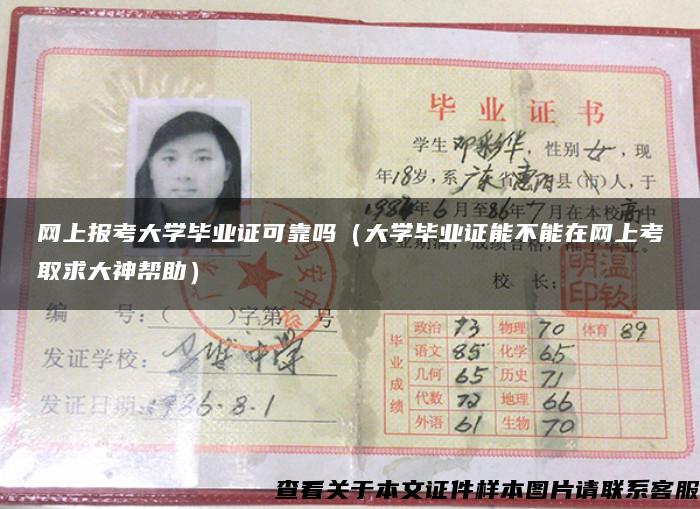 毕业证书
学生邓彩华，性别女，现
年18岁，系广东省惠阳县(市)人，于
1984年6月至86年7月在本校高中
网上报考大学毕业证可靠吗（大学毕业证能不能在网上考
取求大神帮助）
修业期满，成绩合格，
校 长：
温钦明印
编 号：（ ）字第 号
发证学校：马安中学
发证日期：1986·8·1
毕业成绩
政治 73 物理 70 体育 89
语文 85 化学 65
几何 65 历史 71
代数 72 地理 66
外语 61 生物 70
查看关于本文证件样本图片请联系客服